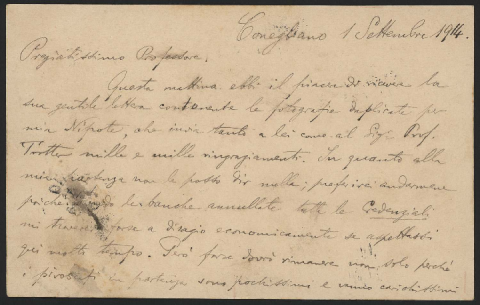 Conegliano 1 Settembre 1914.
Pregiatissimo Professore,
Questa mattina ebbi il piacere di ricever la
sua gentile lettera contenente le fotografie duplicate per
mia Nipote, che invia tanto a lei come al Sig. Prof.
Trotter mille e mille ringraziamenti. In quanto alla
mia partenza non le posso dir nulla; preferirei andarmene
poichè le banche annullate tutte le Credenziali
mi troverei forse a disagio economicamente se aspettassi
qui molto tempo. Però forse dovrò rimanere non solo perchè
i piroscafi in partenza sono pochissimi e carichissimi